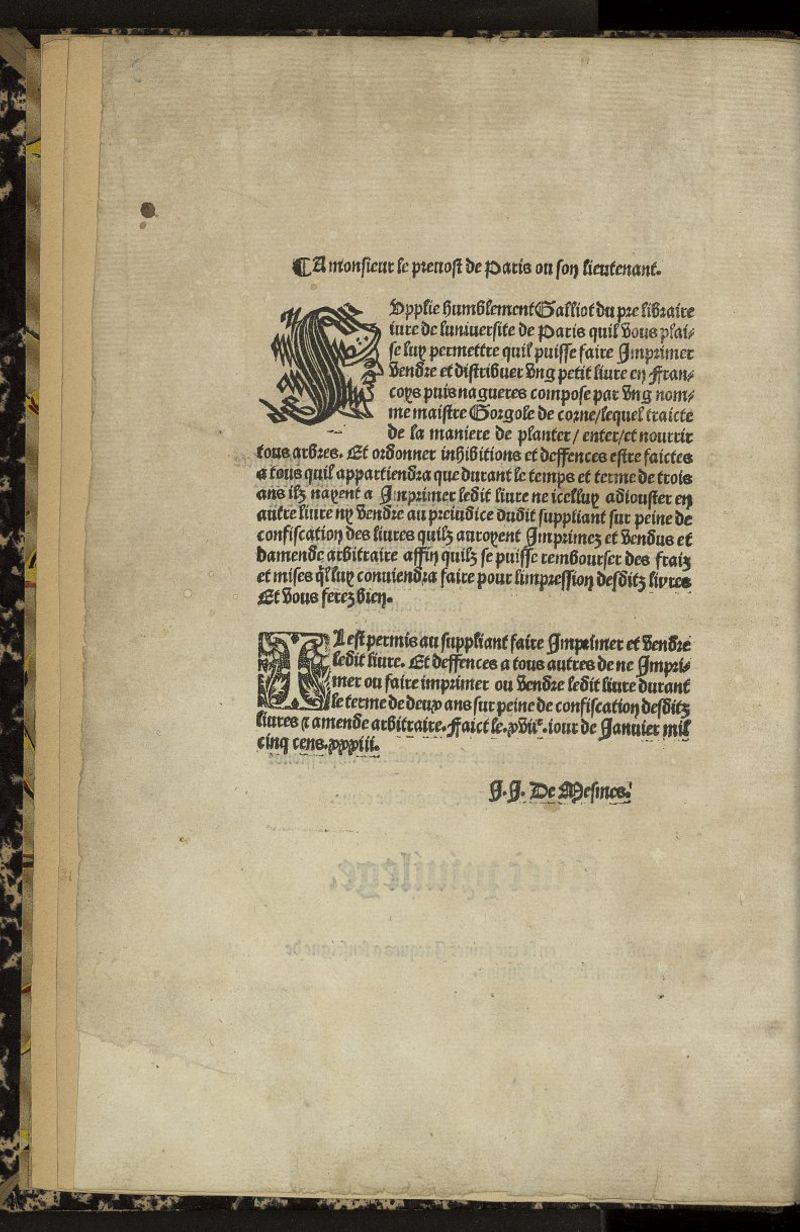 ¶A monsieur le preuost de Paris ou son lieutenant.
SUpplie humblement Galliot du pre libraire
iure de luniuersite de Paris quil vous plai-
se luy permettre quil puisse faire Imprimer
vendre et distribuer vng petit liure en Fran-
coys puis nagueres compose par vng nom-
me maistre Gorgole de corne/lequel traicte
de la maniere de planter/ enter/et nourrir
tous arbres. Et ordonner inhibitions et deffences estre faictes
a tous quil appartiendra que durant le temps et terme de trois
ans ilz nayent a Imprimer ledit liure ne icelluy adiouster en
autre liure ny vendre au preiudice dudit suppliant sur peine de
confiscation des liures quilz auroyent Imprimez et vendus et
damende arbitraire affin quilz se puisse rembourser des fraiz
et mises ql̃ luy conuiendra faire pour limpression desditz liures
Et vous ferez bien.
IL est permis au suppliant faire Imprimer et vendre
ledit liure. Et deffences a tous autres de ne Impri-
mer ou faire imprimer ou vendre ledit liure durant
le terme de deux ans sur peine de confiscation desditz
liures ⁊ amende arbitraire. Faict le .xvii.e iour de Januier mil
cinq cens .xxxiii.
J. J. De Mesmes.
Auec priuilege.